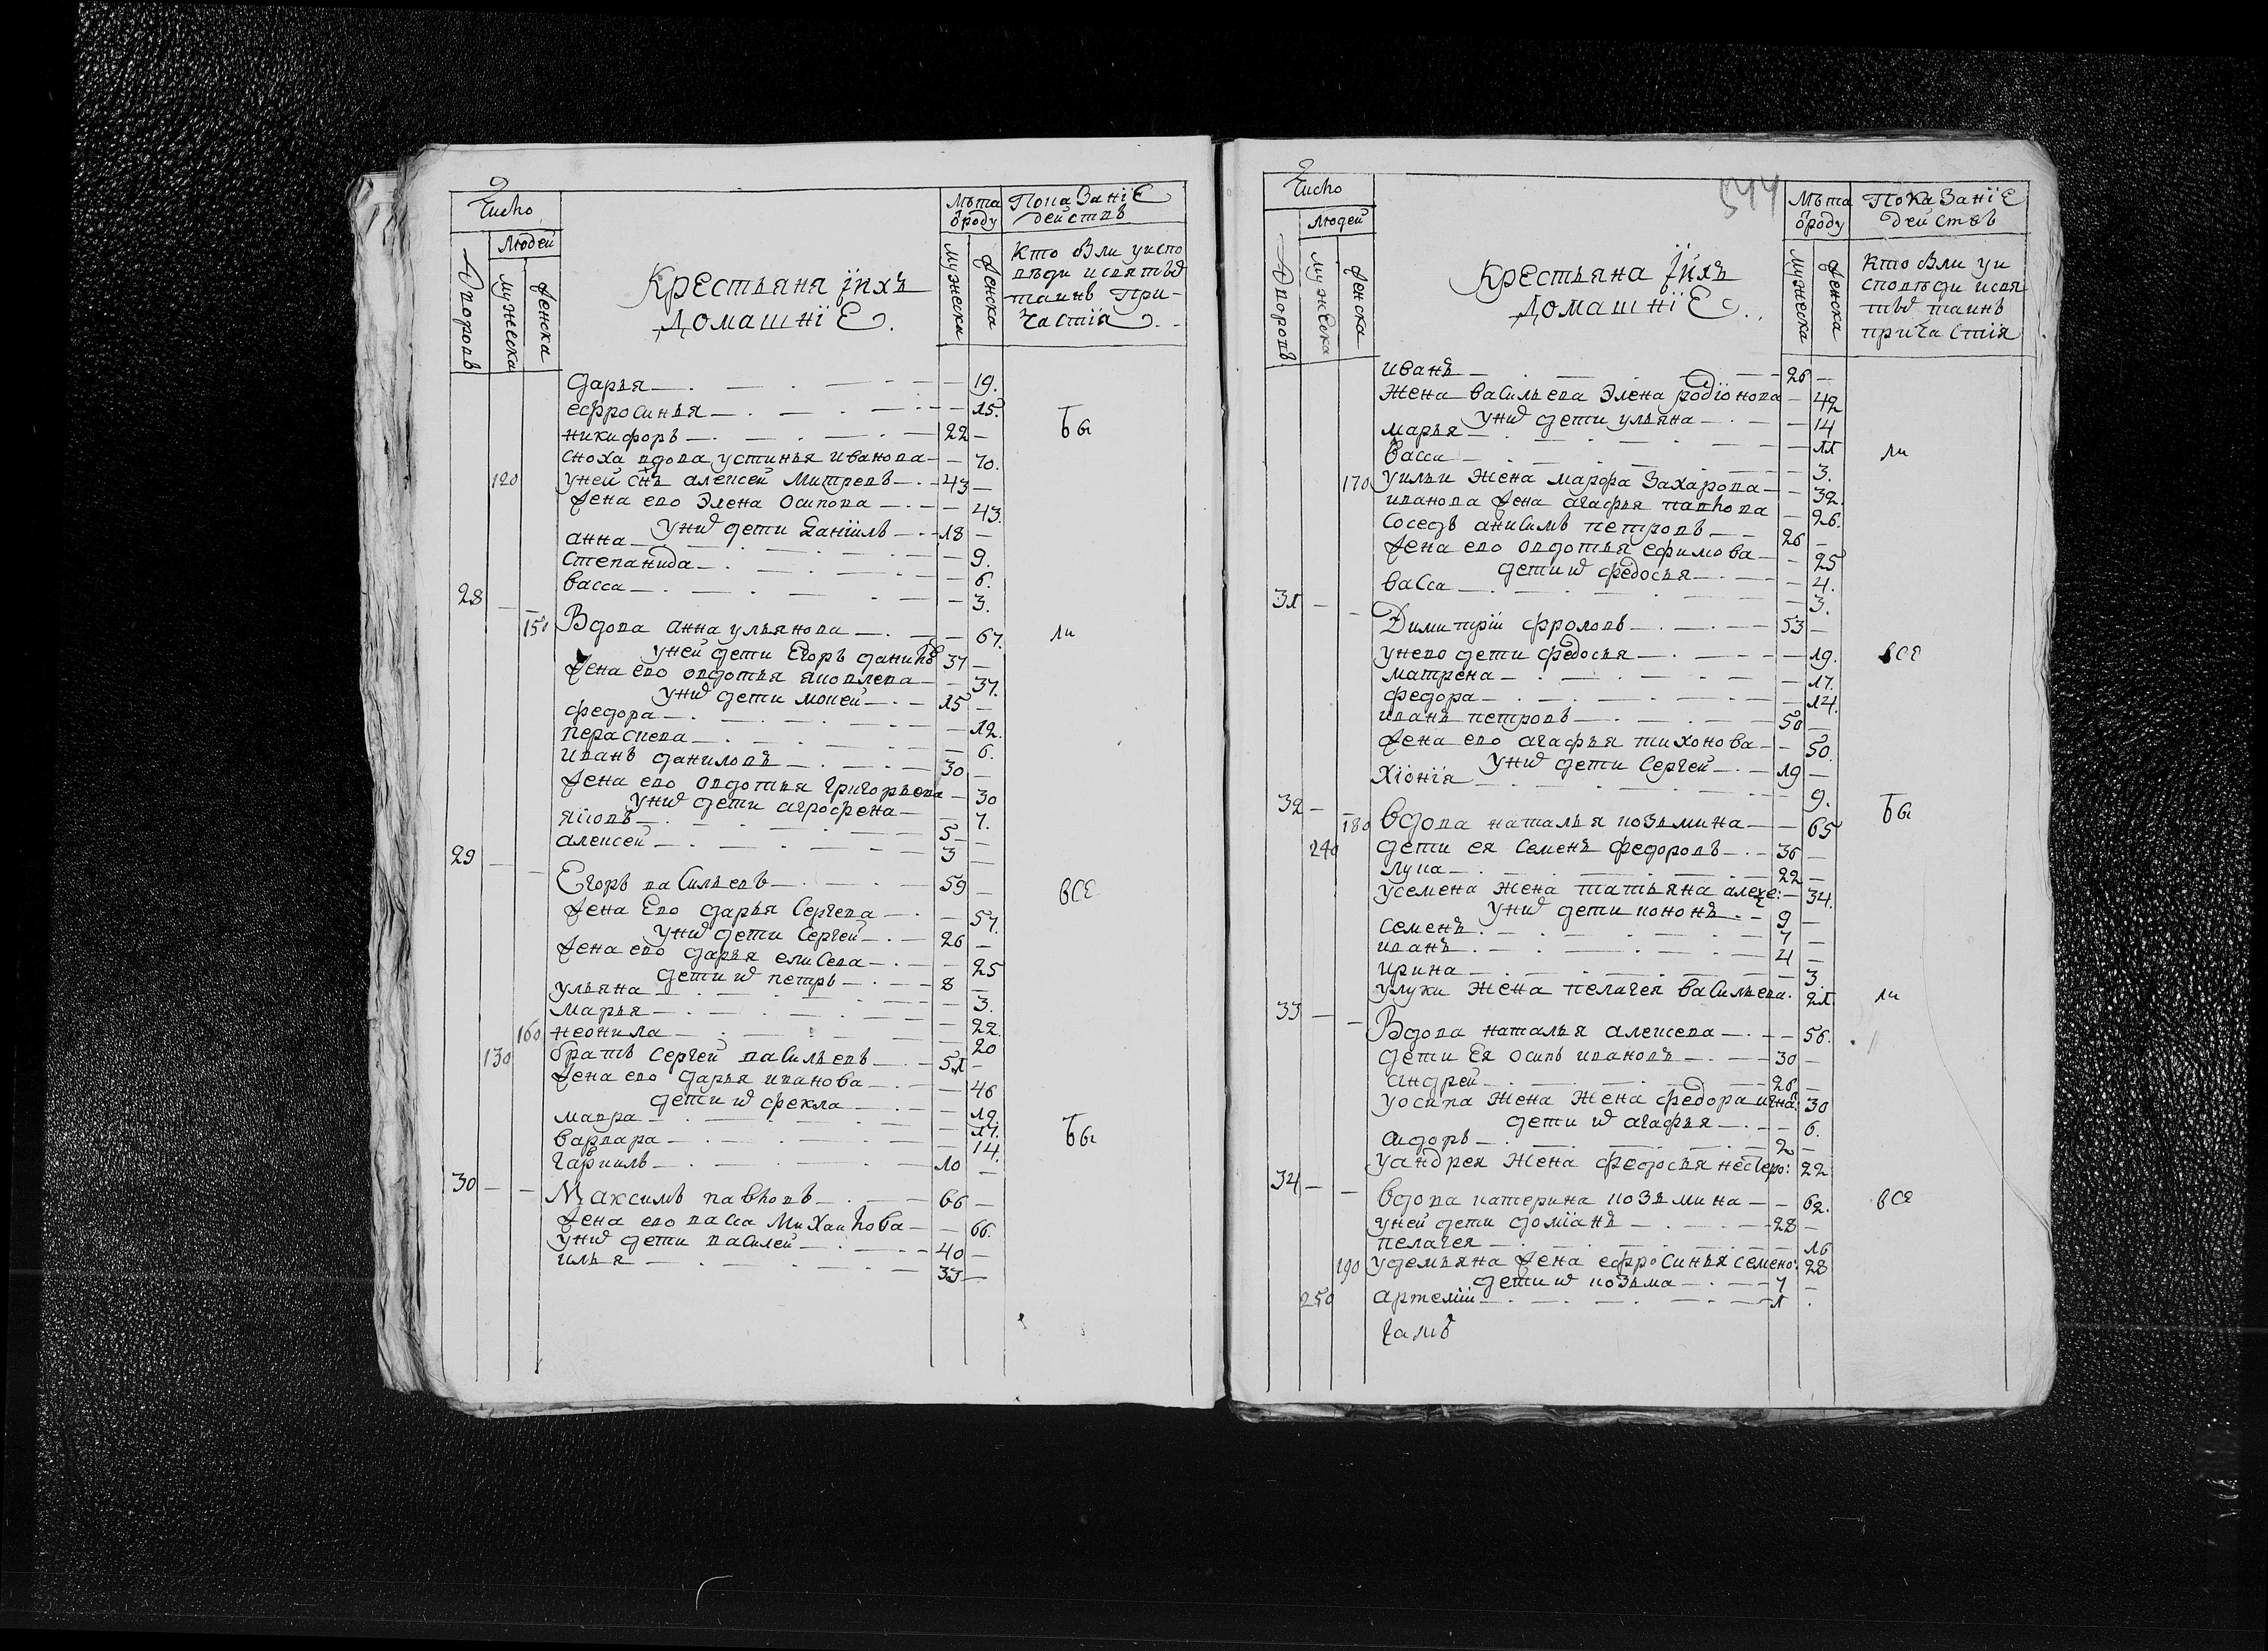 Число
Лѣта ѿроду
Показаніе действъ
Людей
Дворовъ
мужеска
женска
Крестьяня їихъ
Домашніе
мужеска
женска
Кто был уиспо
вѣди исвятыѿ
таинъ При-
частія
дарья — 19.
ефросинья — 15.
никифоръ — 22 —
Бы
сноха вдова устинья иванова — 70.
120 уней снъ алексей Митревъ — 43 —
жена ево Элена осипова — 43.
униѿ дети Даніилъ — 18 —
анна — 9.
степанида — 6.
васса — 3.
28
150 Вдова анна ульянова — 67.
ли
уней дети Егоръ данилѡ 37 —
жена ево овдотья яковлева — 37.
униѿ дети мокей — 15 —
федора — 12.
пераскева — 6.
иванъ даниловъ — 30 —
жена ево овдотья григорьева — 30
униѿ дети агрофена — 7.
яковъ — 5 —
алексей — 3 —
29
Егоръ васильевъ — 59 —
ВСЕ
жена Ево дарья сергева — 57.
униѿ дети сергей — 26 —
жена ево дарья елисева — 25
дети иѿ петръ — 8 —
ульяна — 3.
марья — 22.
160 неонила — 20
130 братъ сергей васильевъ — 51 —
жена ево дарья иванова — 46
дети иѿ фекла — 19.
мавра — 17.
варвара — 14.
Бы
гаврилъ — 10 —
30
Максимъ павловъ — 66 —
жена ево васса михаилова — 66.
униѿ дети василей — 40 —
илья — 33 —
Число
544
Лѣта ѿроду
Показаніе действъ
людей
Дворовъ
мужеска
женска
Крестьяна їихъ
Домашніе
мужеска
женска
Кто был уи
сповѣди исвя
тыѿ таинъ
причастія
иванъ — 26 —
жена васильева Элена родіонова — 42
униѿ дети ульяна — 14
марья — 11
ли
васса — 3.
170 уильи жена марфа захарова — 32
иванова жена агафья павлова — 26.
соседъ анисимъ петровъ — 26 —
жена ево овдотья ефимова — 25
дети иѿ федосья — 4.
васса — 3.
31
Димитрій фроловъ — 53 —
унево дети федосья — 19.
все
матрена — 17.
федора — 14.
иванъ петровъ — 50 —
жена ево агафья тихонова — 50.
униѿ дети сергей — 19 —
хіонія — 9.
32
180 вдова наталья козьмина — 65
Бы
240 дети ея семенъ федоровъ — 36 —
лука — 22 —
усемена жена татьяна алекѣе: — 34.
униѿ дети кононъ — 9 —
семенъ — 7 —
иванъ — 4 —
ирина — 3.
улуки жена пелагея васильева. 21
ли
33
Вдова наталья алексева — 56.
дети Ея осипъ ивановъ — 30 —
андрей — 26 —
уосипа жена жена федора игна: 30
дети иѿ агафья — 6.
сидоръ — 2 —
уандрея жена федосья нестеро: 22
34
вдова катерина козьмина — 62.
все
уней дети доміанъ — 28 —
пелагея — 16
190 удемьяна жена ефросинья семено: 28
дети иѿ козьма — 7 —
250 артемій — 1